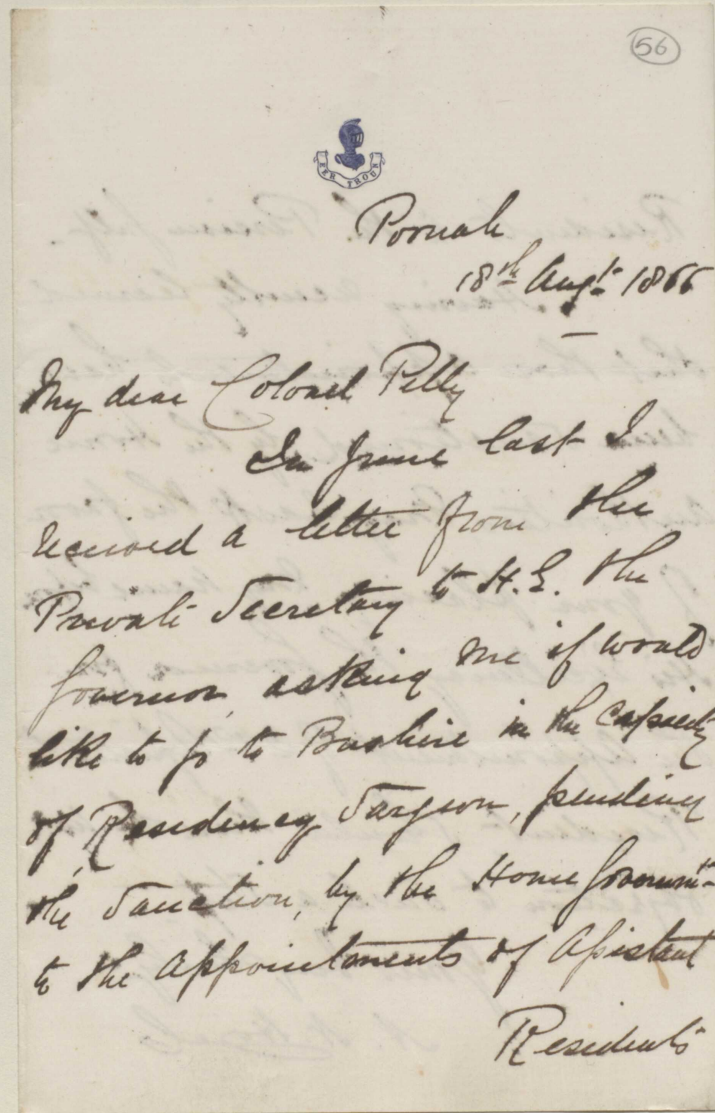 56
FER TROUB
Poonah
18th Augt. 1866
My dear Colonel Pelly
In June last I
received a letter from the
Private Secretary to H.E. the
Governor, asking me if would
like to go to Bushire in the capacity
of Residency Surgeon, pending
the Sanction, by the Home Governmt.
to the appointments of Assistant
Residents